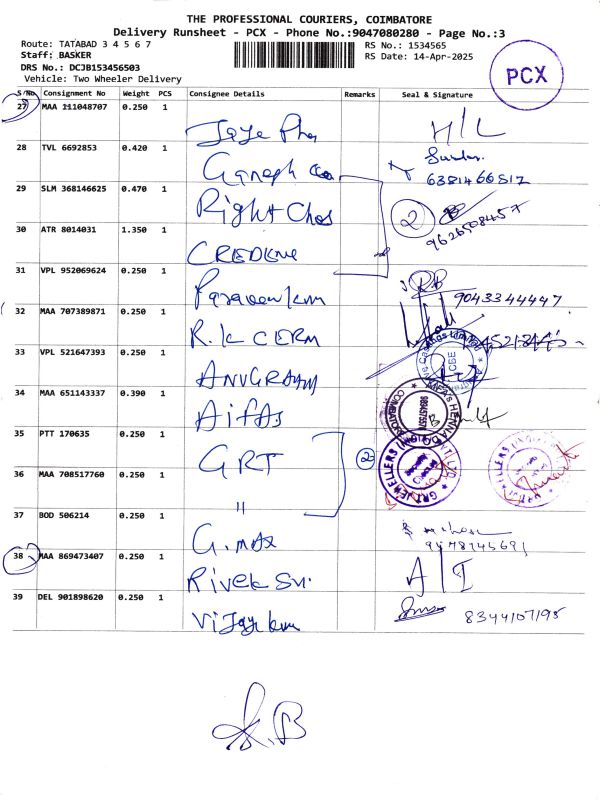 THE PROFESSIONAL COURIERS, COIMBATORE
Delivery Runsheet - PCX - Phone No.:9047080280 - Page No.:3
Route: TATABAD 3 4 5 6 7
RS No.: 1534565
Staff: BASKER
RS Date: 14-Apr-2025
DRS No.: DCJB153456503
Vehicle: Two Wheeler Delivery
PCX
S/No Consignment No Weight PCS Consignee Details Remarks Seal & Signature
27 MAA 111048707 0.250 1 H/L
28 TVL 6692853 0.420 1 Ganesh
6381466812
29 SLM 368146625 0.470 1 Right Chos 2
9626508457
30 ATR 8014031 1.350 1
31 VPL 952069624 0.250 1 9043344447
32 MAA 707389871 0.250 1 R.K CERM
33 VPL 521647393 0.250 1 ANUGRAHAM
34 MAA 651143337 0.390 1 Aifas
35 PTT 170635 0.250 1 GRT 2
36 MAA 708517760 0.250 1 "
37 BOD 506214 0.250 1 G. max
38 MAA 869473407 0.250 1 A/I
39 DEL 901898620 0.250 1 Vijay 8344107195